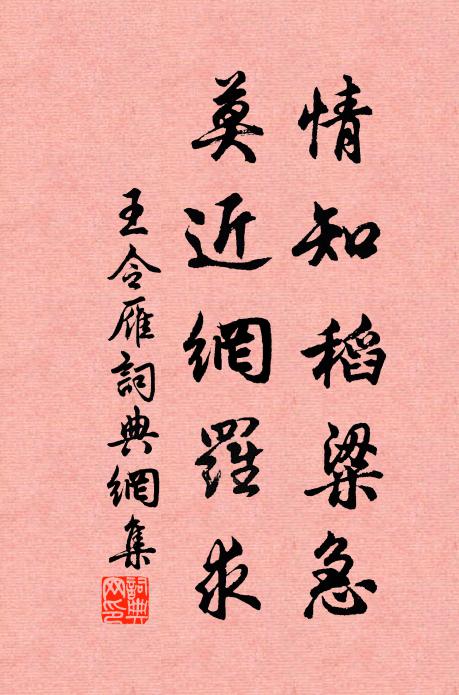 情知稻粱急
莫近網羅求
王令雁詞典網集
詞典網印